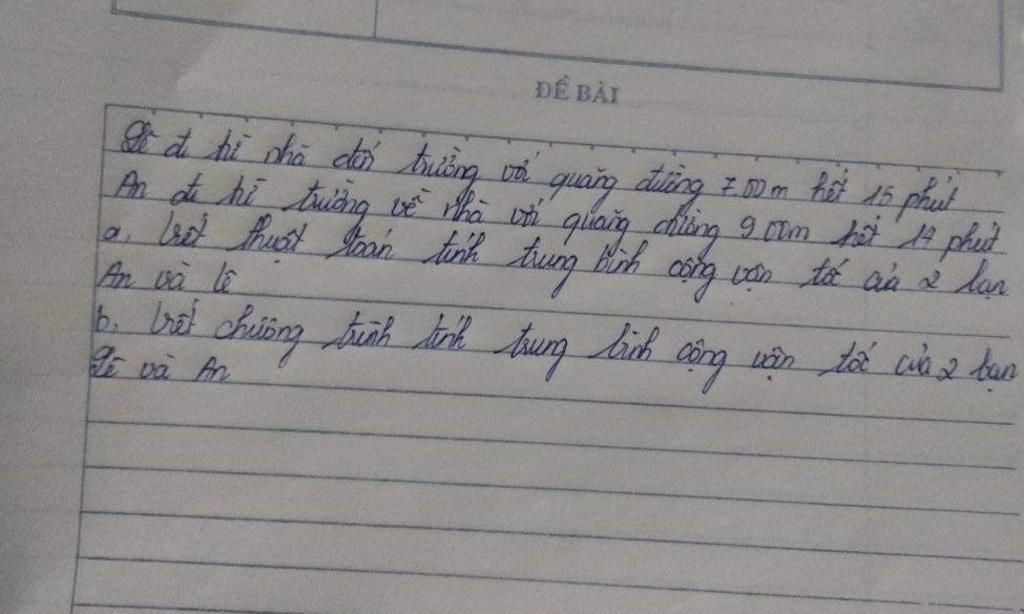 ĐỀ BÀI
Lê đi từ nhà đến trường với quãng đường 700m hết 15 phút
An đi từ trường về nhà với quãng đường 900m hết 14 phút
a, Viết thuật toán tính trung bình cộng vận tốc của 2 bạn
An và Lê
b, Viết chương trình tính trung bình cộng vận tốc của 2 bạn
Lê và An